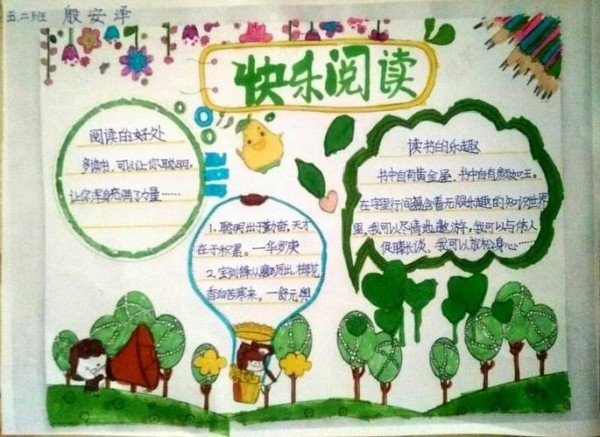 五.二班 殷安泽
快乐阅读
阅读的好处
多读书,可以让你聪明,
让你浑身充满了力量……
1、聪明出于勤奋,天才
在于积累。—华罗庚
2、宝剑锋从磨砺出,梅花
香自苦寒来。—舒元舆
读书的乐趣
书中自有黄金屋,书中自有颜如玉。
在字里行间蕴含着无限乐趣的知识世界
里,我可以尽情地遨游,我可以与伟人
促膝长谈,我可以放松身心……